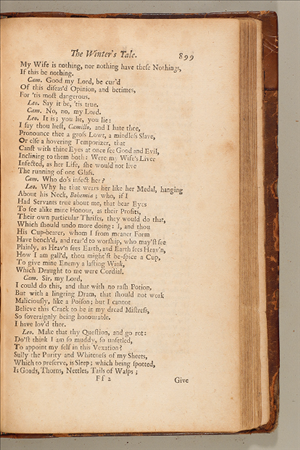 The Winter's Tale. 899
My Wife is nothing, nor nothing have these Nothings,
If this be nothing.
Cam. Good my Lord, be cur'd
Of this diseas'd Opinion, and betimes,
For 'tis most dangerous.
Leo. Say it be, 'tis true.
Cam. No, no, my Lord.
Leo. It is; you lie, you lie:
I say thou liest, Camillo, and I hate thee,
Pronounce thee a gross Lowt, a mindless Slave,
Or else a hovering Temporizer, that
Canst with thine Eyes at once see Good and Evil,
Inclining to them both: Were my Wife's Liver
Infected, as her Life, she would not live
The running of one Glass.
Cam. Who do's infect her?
Leo. Why he that wears her like her Medal, hanging
About his Neck, Bohemia; who, if I
Had Servants true about me, that bear Eyes
To see alike mine Honour, as their Profits,
Their own particular Thrifts, they would do that,
Which should undo more doing: I, and thou
His Cup-bearer, whom I from meaner Form
Have bench'd, and rear'd to worship, who may'st see
Plainly, as Heav'n sees Earth, and Earth sees Heav'n,
How I am gall'd, thou might'st be-spice a Cup,
To give mine Enemy a lasting Wink,
Which Draught to me were Cordial.
Cam. Sir, my Lord,
I could do this, and that with no rash Potion,
But with a lingring Dram, that should not work
Maliciously, like a Poison; but I cannot
Believe this Crack to be in my dread Mistress,
So soveraignly being honourable.
I have lov'd thee.
Leo. Make that thy Question, and go rot:
Do'st think I am so muddy, so unsetled,
To appoint my self in this Vexation?
Sully the Purity and Whiteness of my Sheets,
Which to preserve, is Sleep; which being spotted,
Is Goads, Thorns, Nettles, Tails of Wasps;
Ff 2 Give